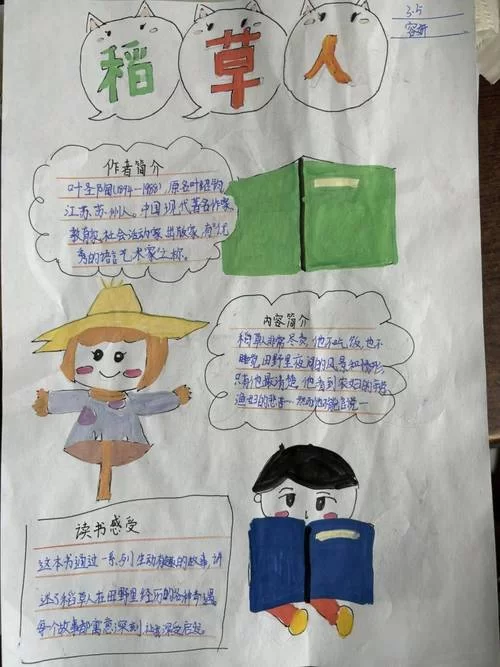 3.5
稻草人
作者简介
叶圣陶(1894-1988),原名叶绍钧
江苏苏州人。中国现代著名作家
教育家,社会活动家 出版家,有"优
秀的语言艺术家"之称。
内容简介
稻草人非常尽责,他不吃饭,也不
睡觉,田野里夜间的风景和情形,
只有他最清楚,他看到农妇的
渔妇的悲苦…然而他不能言说一
读书感受
这本书通过一系列生动有趣的故事,讲
述了稻草人在田野里经历的各种奇遇
每个故事都寓意深刻,让我深受启发